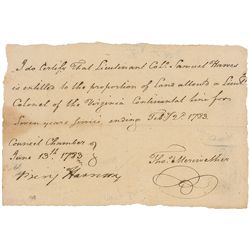 I do Certify that Lieutenant Colo. Samuel Hawes
is entitled to the proportion of Land allotd a Lieut.
Colonel of the Virginia Continental line for
Seven years Service, ending Feby 2d 1783.
Council Chamber
June 13th 1783
Thos. Meriwether
Benj Harrison